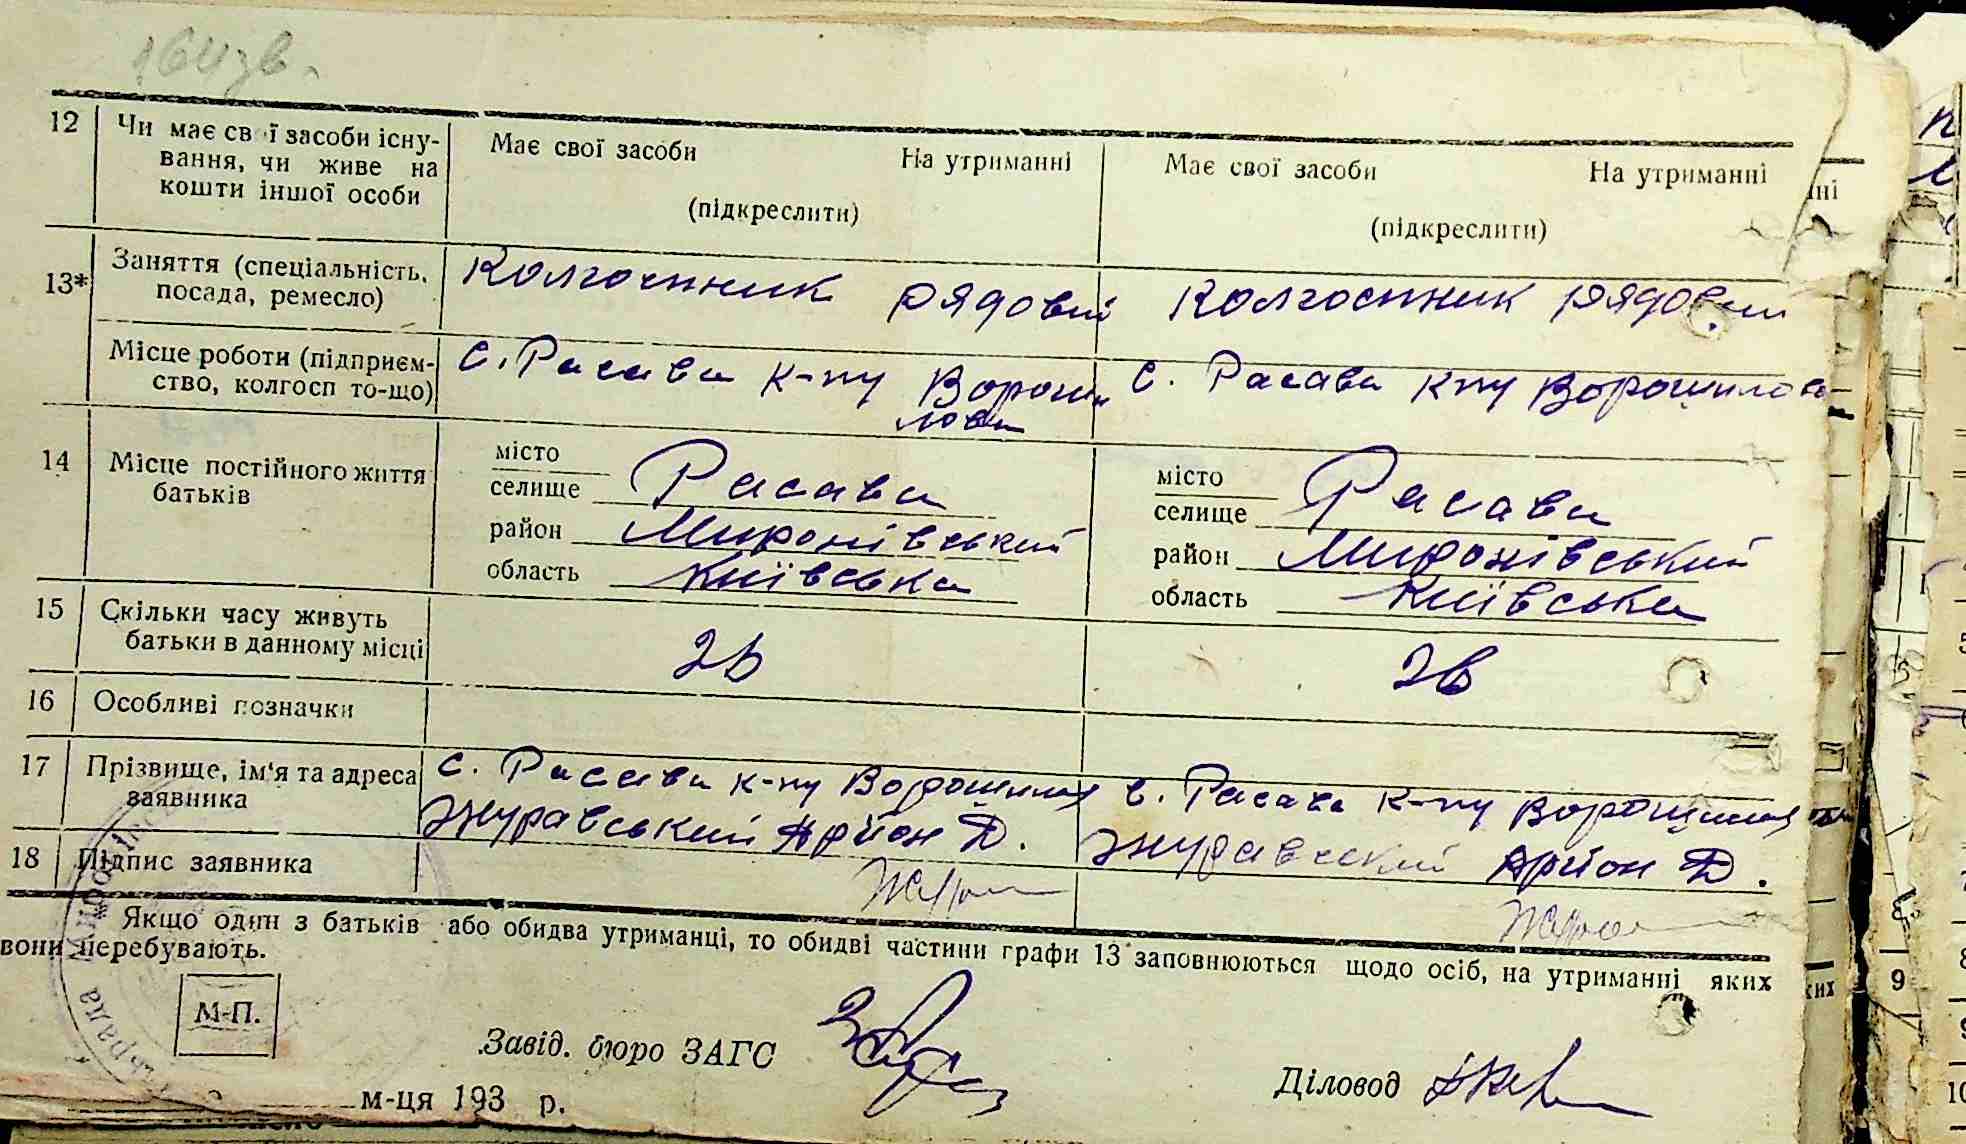 164 зв.
12 Чи має св ї засоби існу- Має свої засоби На утриманні Має свої засоби На утриманні
вання, чи живе на
кошти іншої особи (підкреслити) (підкреслити)
13* Заняття (спеціальність, Колгоспник рядовий Колгоспник рядовий
посада, ремесло)
Місце роботи (підприєм- с. Расава к-пу Вороши с. Расава к-пу Ворошилова
ство, колгосп то-що) лова
14 Місце постійного життя місто місто
батьків селище Расава селище Расава
район Миронівський район Миронівський
область Київська область Київська
15 Скільки часу живуть
батьки в данному місці
16 Особливі позначки
17 Прізвище, ім'я та адреса с. Расава к-пу Ворошилова с. Расава к-пу Ворошилова
заявника Журавський Арйон Д. Журавський Арйон Д.
18 Підпис заявника
Якщо один з батьків або обидва утриманці, то обидві частини графи 13 заповнюються щодо осіб, на утриманні яких
вони перебувають.
М-П.
Завід. бюро ЗАГС
Діловод
м-ця 193 р.